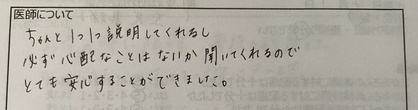 医師について
ちゃんと1つ1つ説明してくれるし
必ず心配なことはないか聞いてくれるので
とても安心することができました。